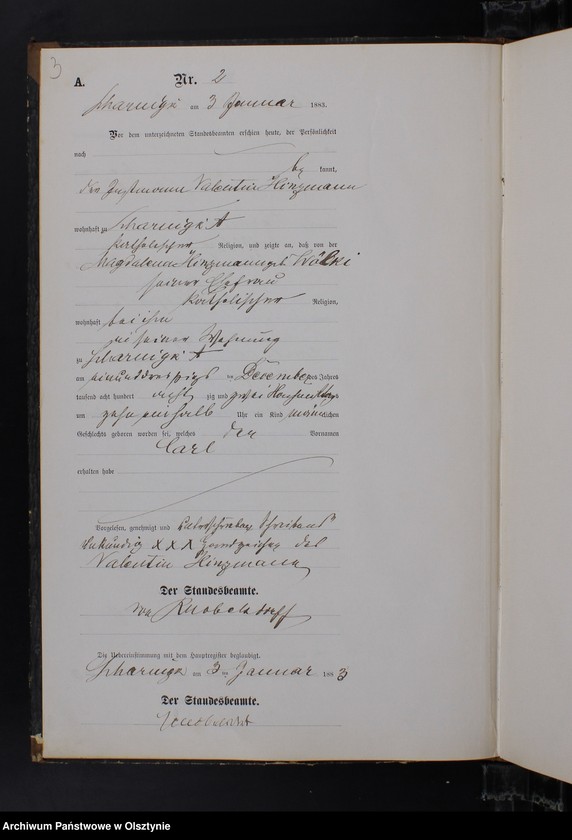 3
A. Nr. 2
Scharnigk am 3 Januar 1883.
Vor dem unterzeichneten Standesbeamten erschien heute, der Persönlichkeit
nach
be kannt,
der Instmann Valentin Hinzmann
wohnhaft zu Scharnigk A
katholischer Religion, und zeigte an, daß von der
Magdalena Hinzmann geb. Wölki
seiner Ehefrau
katholischer Religion,
wohnhaft bei ihm
in seiner Wohnung
zu Scharnigk A
am einunddreißigs ten December des Jahres
tausend acht hundert acht zig und zwei
um zehn einhalb Uhr ein Kind männlichen
Geschlechts geboren worden sei, welches den Vornamen
Carl
erhalten habe
Vorgelesen, genehmigt und Schreibens
unkundig X X X Handzeichen des
Valentin Hinzmann
Der Standesbeamte.
von Knobelsdorff
Die Uebereinstimmung mit dem Hauptregister beglaubigt.
Scharnigk am 3 ten Januar 1883
Der Standesbeamte.
Archiwum Państwowe w Olsztynie